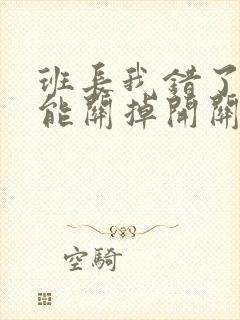 班长我错了
能關掉開關
空騎